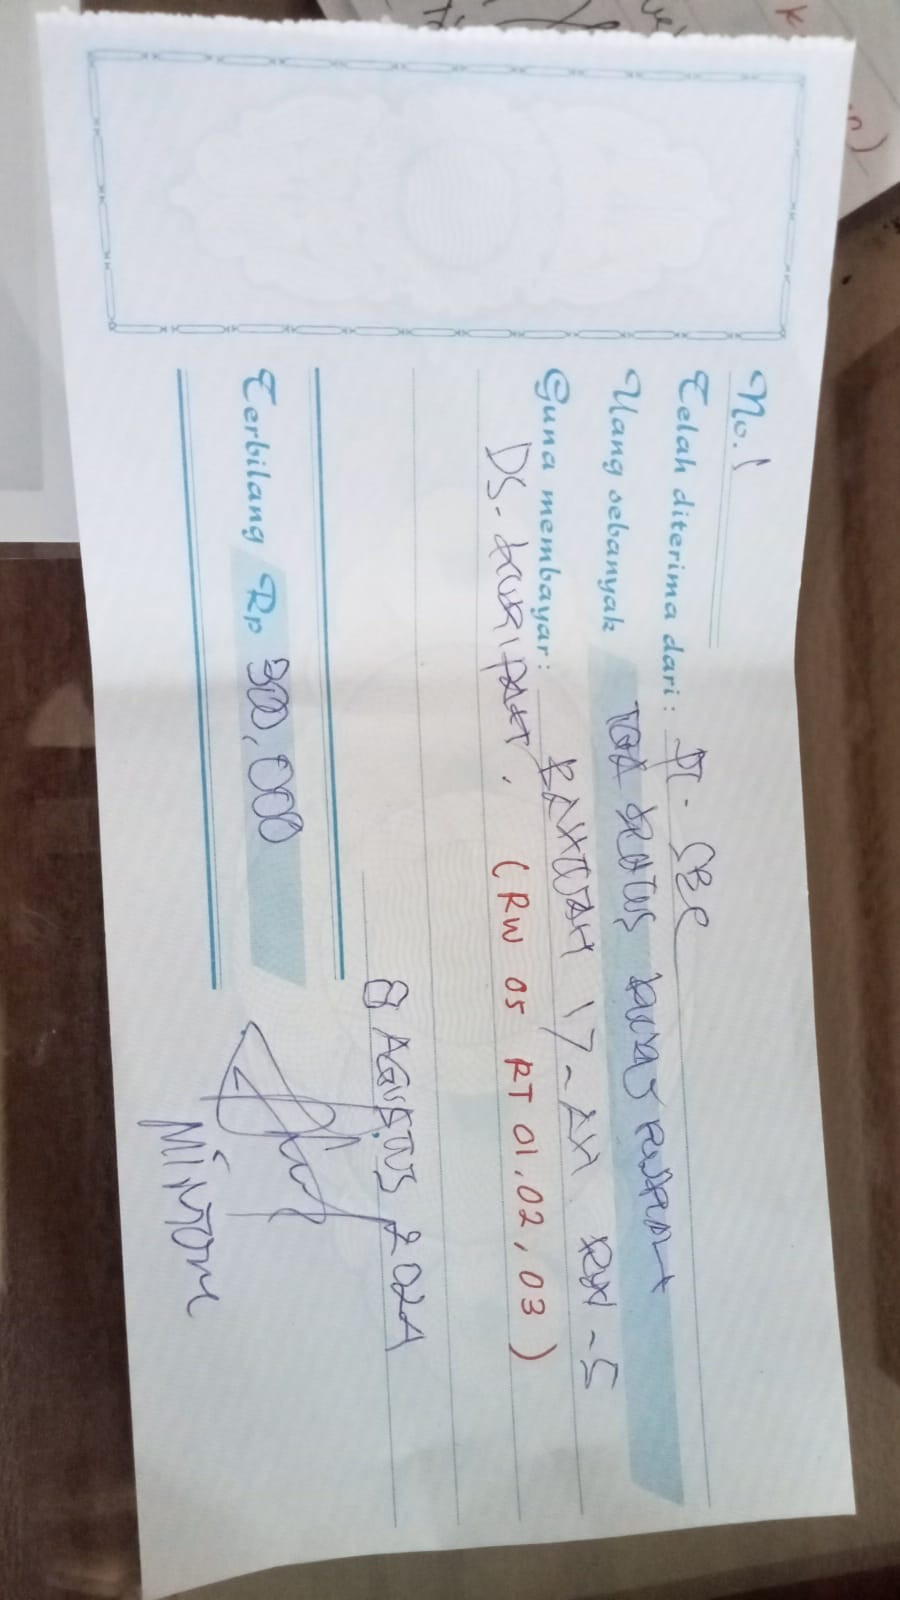 No. 1
Telah diterima dari : PT. SBC
Uang sebanyak TIGA RATUS RIBU RUPIAH
Guna membayar : BANTUAN 17-AN RW-5
DS.
(RW 05 RT 01, 02, 03)
8 AGUSTUS 2024
Terbilang Rp 300,000